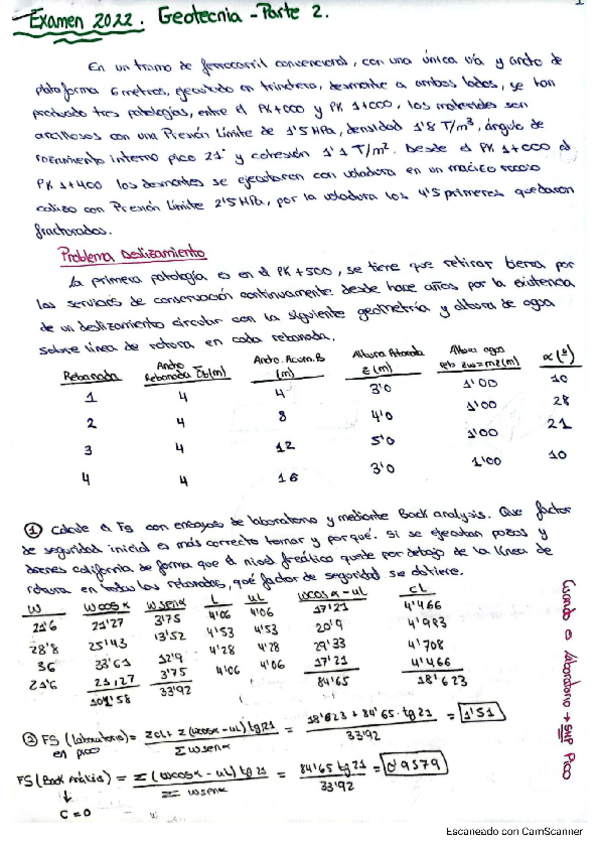 Examen 2022. Geotecnia - Parte 2.
En un tramo de ferrocarril convencional, con una única vía y ancho de
plataforma 6 metros, ejecutado en trinchera, desmonte a ambos lados, se han
producido tres patologías, entre el PK+000 y PK 1+000, los materiales son
arcillosos con una Presión Límite de 1'5 MPa, densidad 1'8 T/m³, ángulo de
rozamiento interno pico 21° y cohesión 1'1 T/m². Desde el PK 1+000 al
PK 1+400 los desmontes se ejecutaron con voladura en un macizo rocoso
calizo con Presión Límite 2'5 MPa, por la voladura los 4'5 primeros quedaron
fracturados.
Problema Deslizamiento
La primera patología es en el PK+500, se tiene que retirar tierra por
los servicios de conservación continuamente desde hace años por la existencia
de un deslizamiento circular con la siguiente geometría y altura de agua
sobre línea de rotura en cada rebanada.
Rebanada Ancho Rebanada b(m) Ancho. Acum. B (m) Altura z (m) Altura agua zw=mz(m) α(º)
1 4 4 3'0 1'00 10
2 4 8 4'0 1'00 28
3 4 12 5'0 1'00 21
4 4 16 3'0 1'00 10
① Calcule el FS con ensayos de laboratorio y mediante Back analysis. Que factor
de seguridad inicial es más correcto tomar y porqué. Si se ejecutan pozos y
drenes california de forma que el nivel freático quede por debajo de la línea de
rotura en todas las rebanadas, qué factor de seguridad se obtiene.
W Wcosα Wsenα L uL Wcosα-uL CL
21'6 21'27 3'75 4'06 4'06 17'21 4'466
28'8 25'43 13'52 4'53 4'53 20'9 4'983
36 33'61 12'9 4'28 4'28 29'33 4'708
21'6 21,27 3'75 4'06 4'06 17'21 4'466
101'58 33'92 84'65 18'623
② FS (Laboratorio) = ΣCL+Σ(Wcosα-uL)tg21 / Σwsenα = 18'623+84'65·tg21 / 33'92 = 1'51
en pico
FS (Back Análisis) = Σ(Wcosα-uL)tg21 / Σwsenα = 84'65 tg21 / 33'92 = 0'9579
↓
C=0
Cuando es laboratorio → Pico
Escaneado con CamScanner